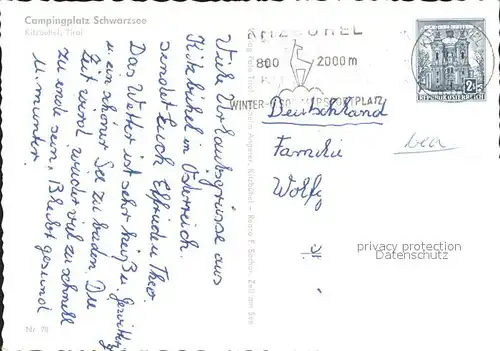 Campingplatz Schwarzsee
Kitzbühel, Tirol
Viele Urlaubsgrüsse aus
Kitzbühel in Österreich.
sendet Euch Elfriede u Theo.
Das Wetter ist sehr heiß u. gewittrig
u. ein schöner See zu baden. Die
Zeit wird wieder viel zu schnell
zu ende sein. Bleibt gesund
u. munter.
Nr. 78
KITZBÜHEL
800 2000 m
WINTER- U. SOMMERSPORTPLATZ
2S
REPUBLIK ÖSTERREICH
Deutschland
Familie
Wolfg
privacy protection
Datenschutz